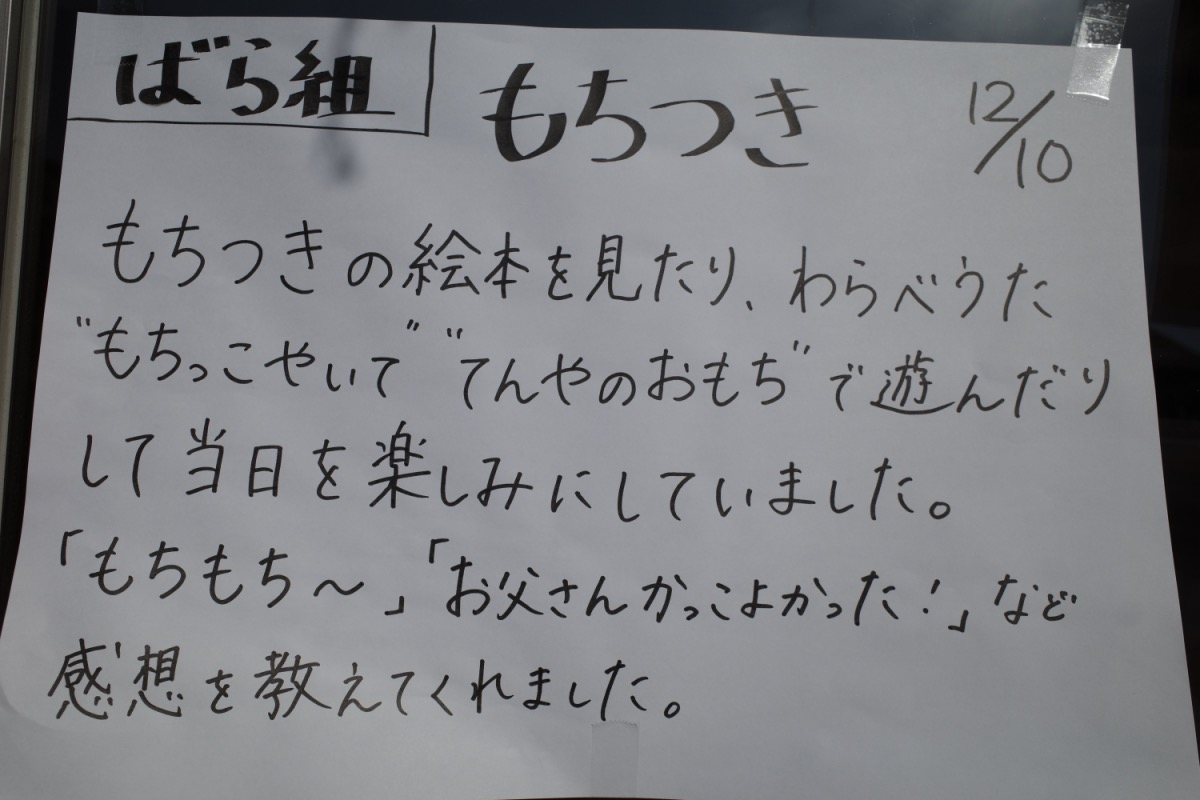 ばら組 もちつき 12/10
もちつきの絵本を見たり、わらべうた
"もちっこやいて" "てんやのおもち"で遊んだり
して当日を楽しみにしていました。
「もちもち～」「お父さんかっこよかった!」など
感想を教えてくれました。